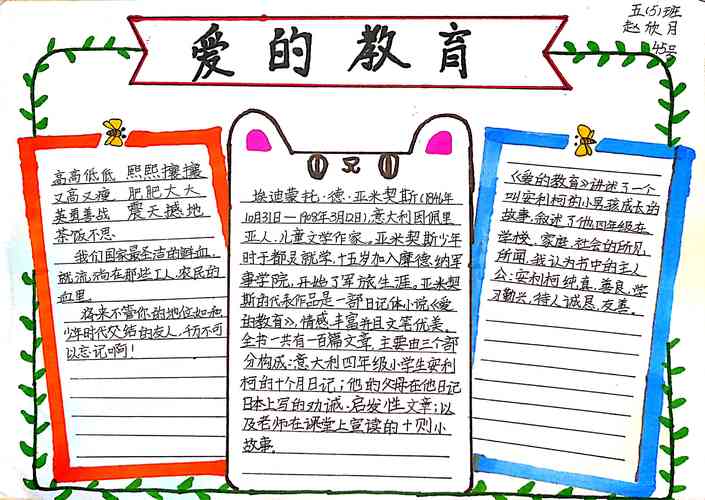 五(5)班
赵欣月
45号
爱的教育
高高低低 熙熙攘攘
又高又瘦 肥肥大大
英勇善战 震天撼地
茶饭不思
我们国家最圣洁的鲜血,
就流淌在那些工人、农民的
血里.
将来不管你的地位如和
少年时代交结的友人,千万不可
以忘记啊!
埃迪蒙托·德·亚米契斯(1846年
10月31日—1908年3月12日),意大利因佩里
亚人.儿童文学作家。亚米契斯少年
时于都灵就学,十五岁加入摩德纳军
事学院,开始了军旅生涯。亚米契
斯的代表作品是一部日记体小说《爱
的教育》,情感丰富并且文笔优美。
全书一共有一百篇文章,主要由三个部
分构成:意大利四年级小学生安利
柯的十个月日记;他的父母在他日记
日本上写的劝诫·启发性文章;以
及老师在课堂上宣读的十则小
故事.
《爱的教育》讲述了一个
叫安利柯的小男孩成长的
故事,叙述了他四年级在
学校、家庭、社会的所见
所闻.我认为书中的主人
公:安利柯纯真、善良、学
习勤兴、待人诚恳、友善。